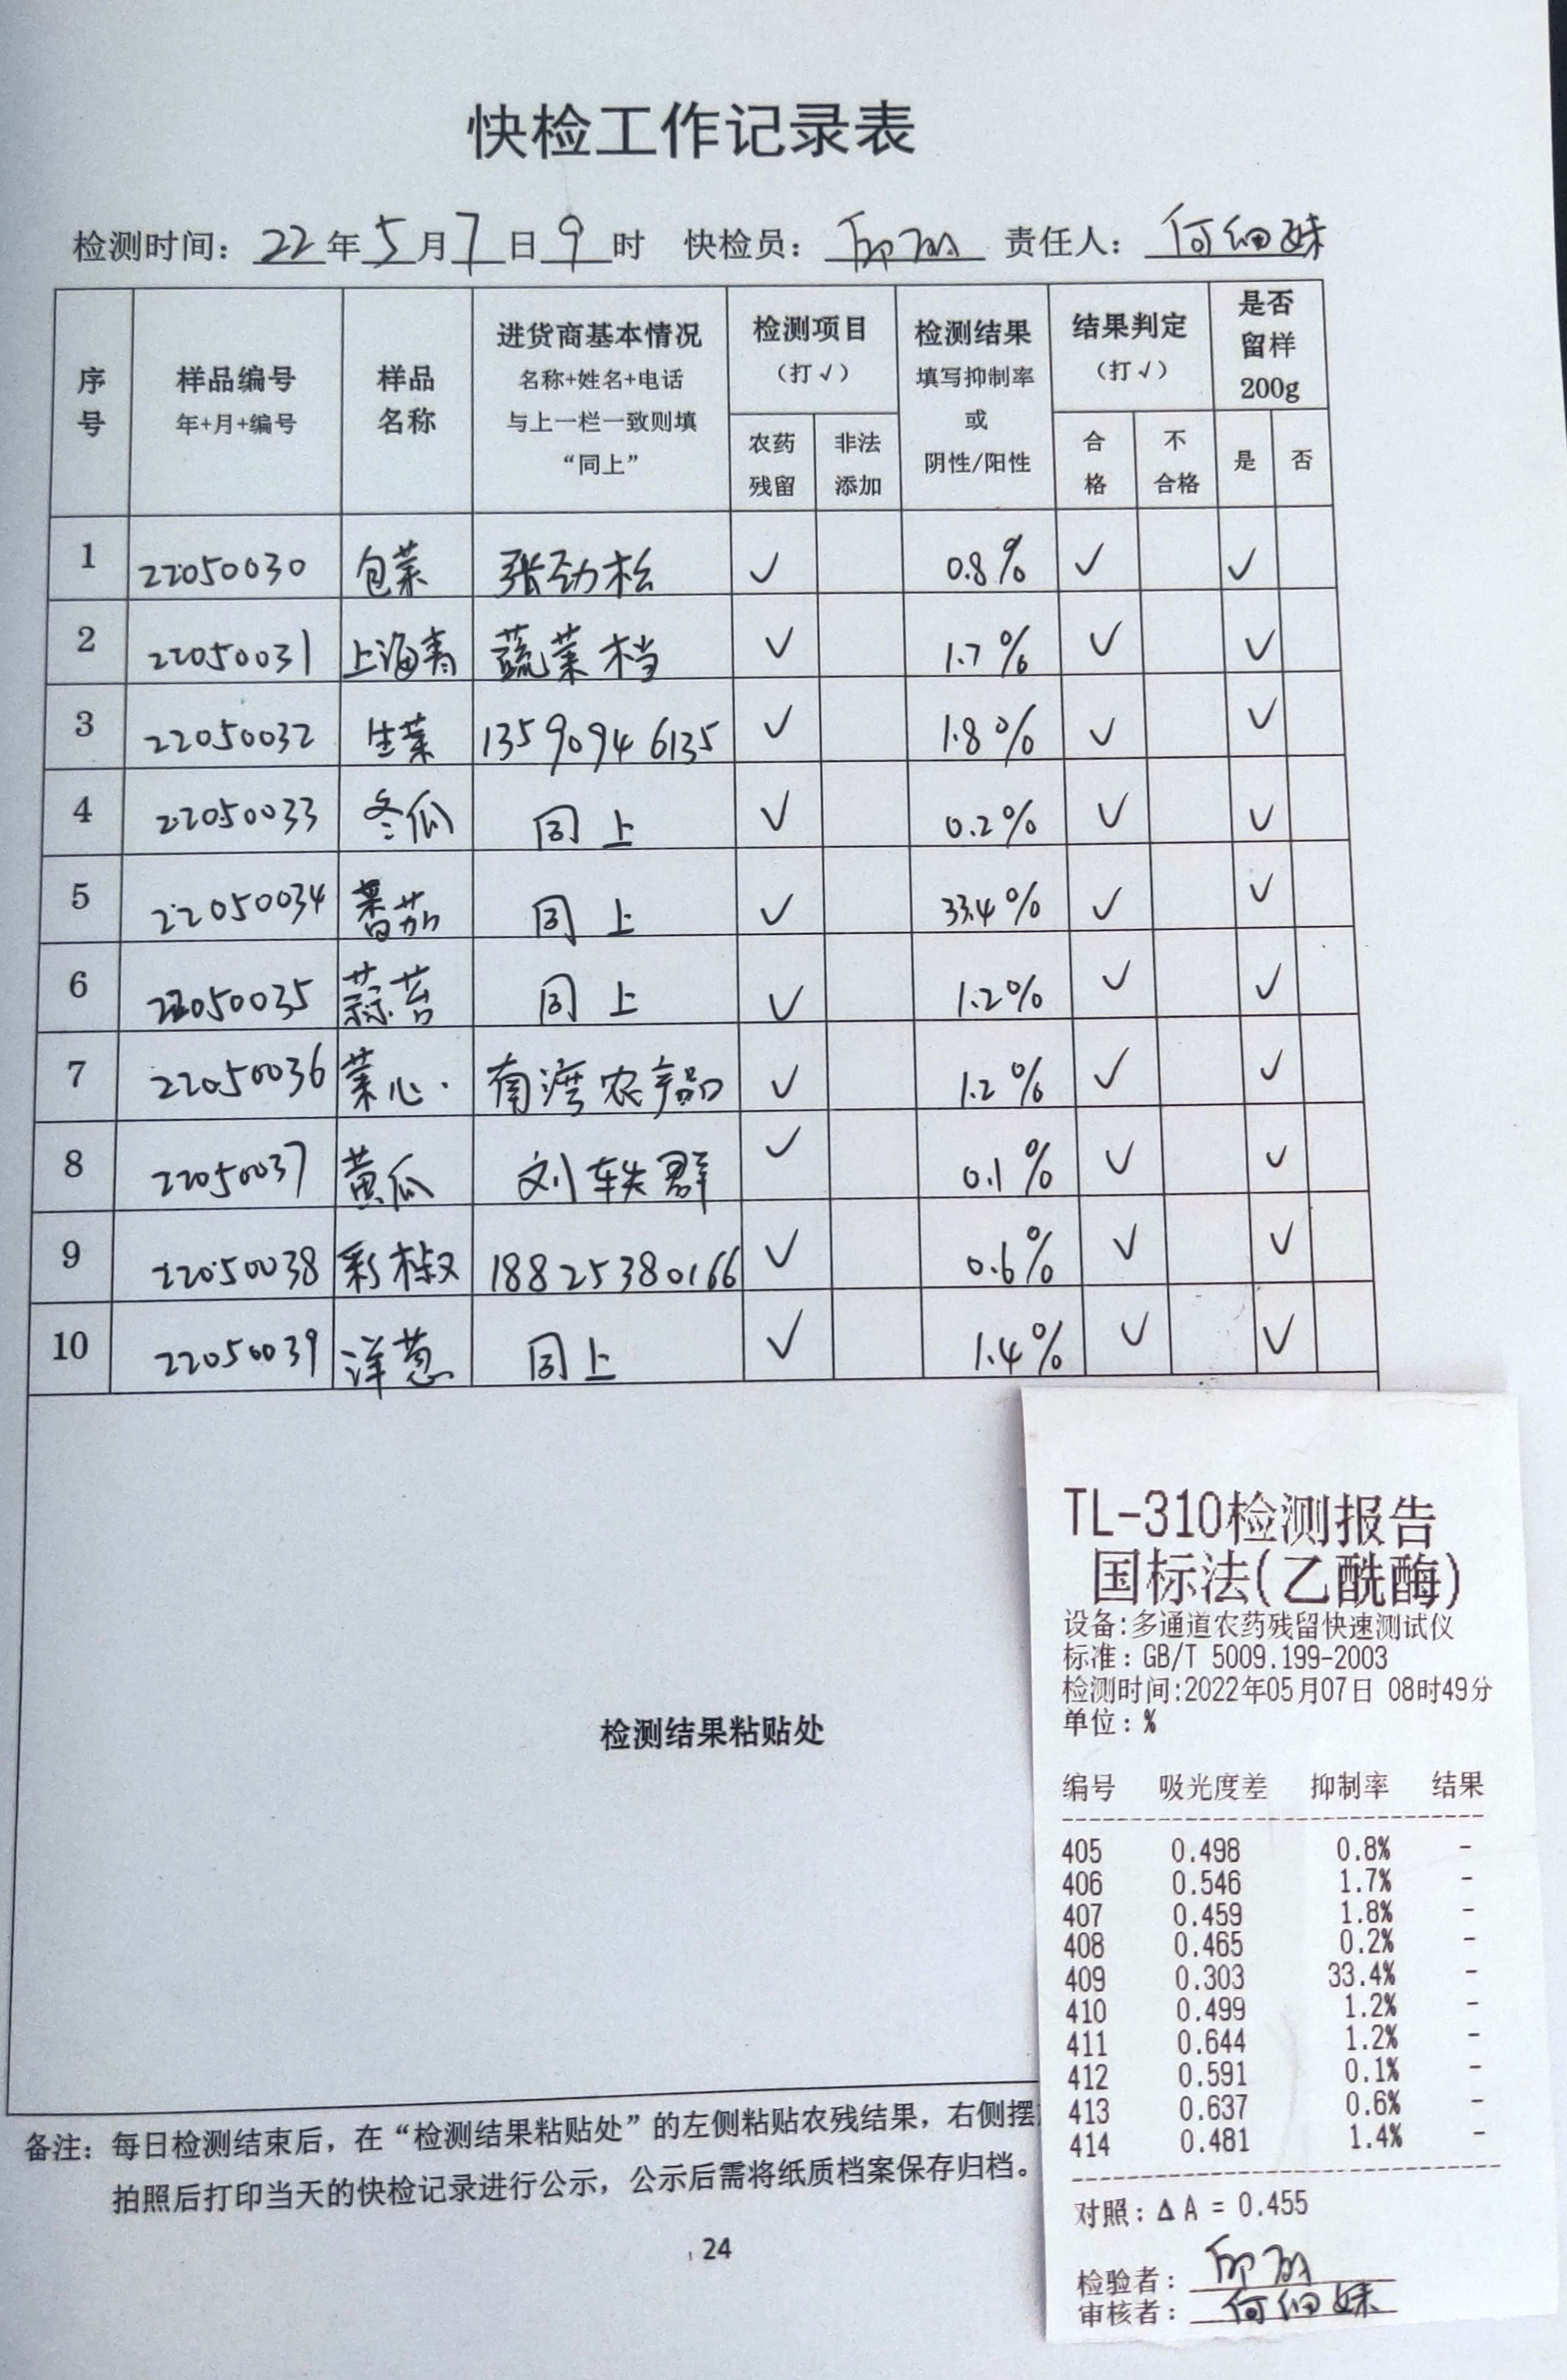 快检工作记录表
检测时间：22年5月7日9时 快检员： 责任人：何细妹
序号 样品编号 年+月+编号 样品名称 进货商基本情况 名称+姓名+电话 与上一栏一致则填“同上” 检测项目（打√） 农药残留 非法添加 检测结果 填写抑制率或阴性/阳性 结果判定（打√） 合格 不合格 是否留样200g 是 否
1 22050030 包菜 张劲松 √ 0.8% √ √
2 22050031 上海青 蔬菜档 √ 1.7% √ √
3 22050032 生菜 13590946135 √ 1.8% √ √
4 22050033 冬瓜 同上 √ 0.2% √ √
5 22050034 番茄 同上 √ 33.4% √ √
6 22050035 蒜苔 同上 √ 1.2% √ √
7 22050036 菜心 南湾农产品 √ 1.2% √ √
8 22050037 黄瓜 刘轶群 √ 0.1% √ √
9 22050038 彩椒 18825380166 √ 0.6% √ √
10 22050039 洋葱 同上 √ 1.4% √ √
检测结果粘贴处
备注：每日检测结束后，在“检测结果粘贴处”的左侧粘贴农残结果，右侧摆
拍照后打印当天的快检记录进行公示，公示后需将纸质档案保存归档。
24
TL-310检测报告
国标法(乙酰酶)
设备:多通道农药残留快速测试仪
标准: GB/T 5009.199-2003
检测时间:2022年05月07日 08时49分
单位: %
编号 吸光度差 抑制率 结果
405 0.498 0.8% -
406 0.546 1.7% -
407 0.459 1.8% -
408 0.465 0.2% -
409 0.303 33.4% -
410 0.499 1.2% -
411 0.644 1.2% -
412 0.591 0.1% -
413 0.637 0.6% -
414 0.481 1.4% -
对照: Δ A = 0.455
检验者:
审核者: 何细妹